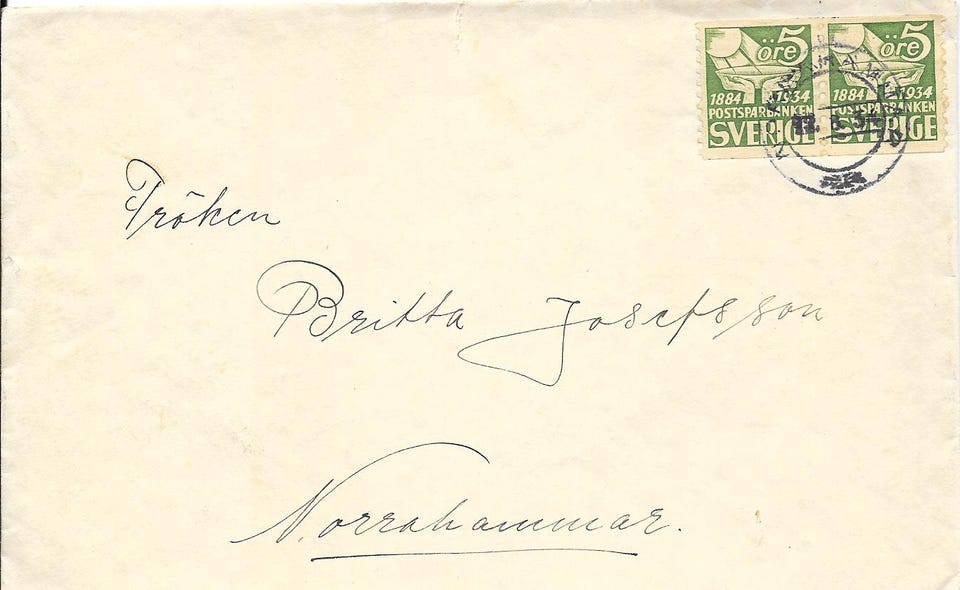 öre 5 öre 5
1884 1934 1884 1934
POSTSPARBANKEN POSTSPARBANKEN
SVERIGE SVERIGE
NORRAHAMMAR
Fröken
Britta Josefsson
Norrahammar.